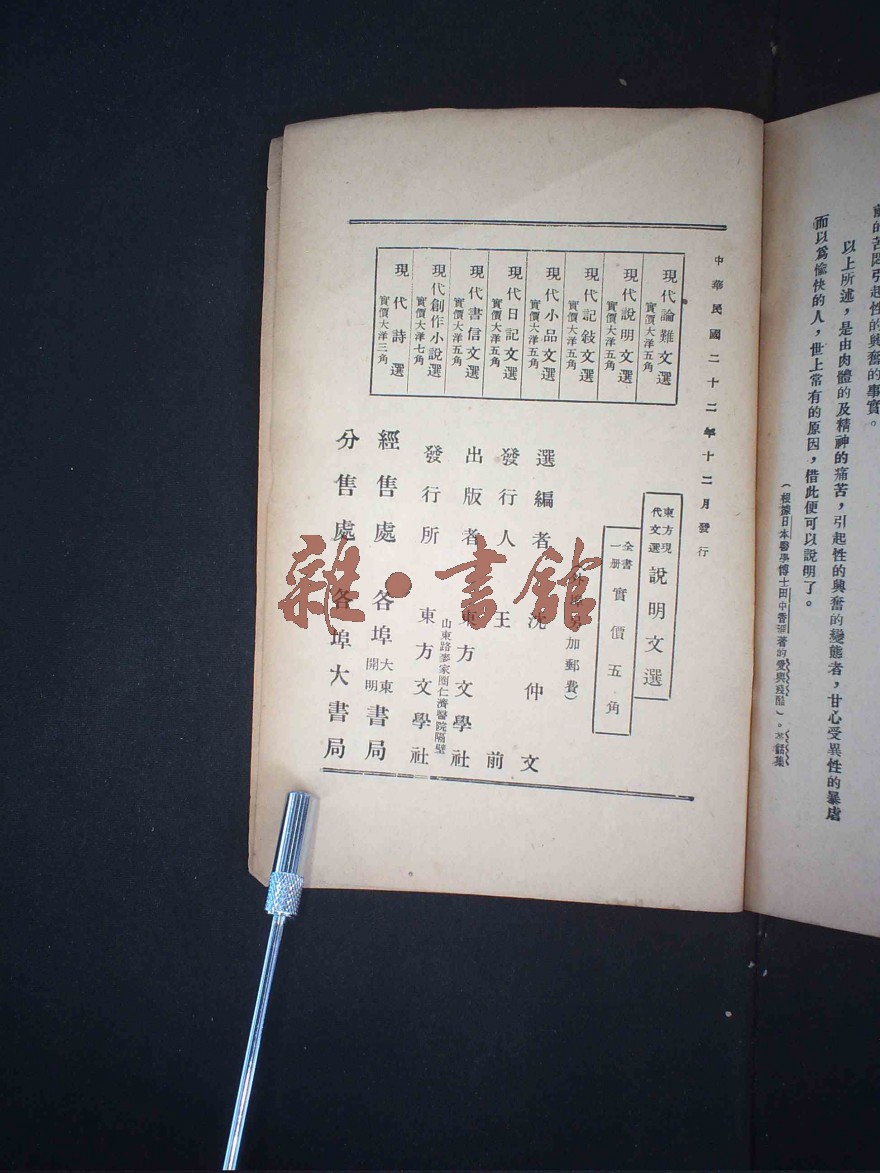 前的苦悶引起性的興奮的事實。
以上所述，是由肉體的及精神的痛苦，引起性的興奮的變態者，甘心受異性的暴虐
而以爲愉快的人，世上常有的原因，借此便可以說明了。
（根據日本醫學博士田中香涯著的愛與殘酷）。
中華民國二十二年十二月發行
東方現代文選
說明文選
全書一册
實價五角
加郵費）
現代論難文選
實價大洋五角
現代說明文選
實價大洋五角
現代記敍文選
實價大洋五角
現代小品文選
實價大洋五角
現代日記文選
實價大洋五角
現代書信文選
實價大洋五角
現代創作小說選
實價大洋七角
現代詩選
實價大洋三角
選編者 沈仲文
發行人 王前
出版者 東方文學社
山東路麥家圈仁濟醫院隔壁
發行所 東方文學社
經售處 各埠大東開明書局
分售處 各埠大書局
雜·書館